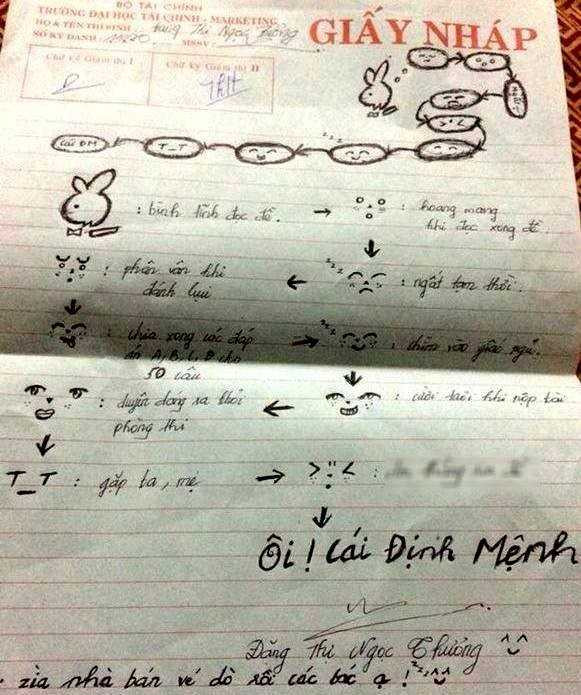 BỘ TÀI CHÍNH
TRƯỜNG ĐẠI HỌC TÀI CHÍNH - MARKETING
GIẤY NHÁP
HỌ & TÊN THÍ SINH: Đặng Thị Ngọc Thưởng
SỐ KÝ DANH: MSSV:
Chữ ký Giám thị I
Chữ ký Giám thị II
zzz
Cái ĐM
T_T
: bình tĩnh đọc đề. → : hoang mang
khi đọc xong đề
: phân vân khi
đánh lụi ← zzz : ngất tạm thời.
: chia xong các đáp
án A, B, C, D cho
50 câu → zzz : chìm vào giấc ngủ.
: duyên dáng ra khỏi
phòng thi ← : cười tươi khi nộp bài
T_T : gặp ba, mẹ → :
Ôi! Cái Định Mệnh
Đặng Thị Ngọc Thưởng ^^
zìa nhà bán vé dò rồi các bác ạ! zzz ^^